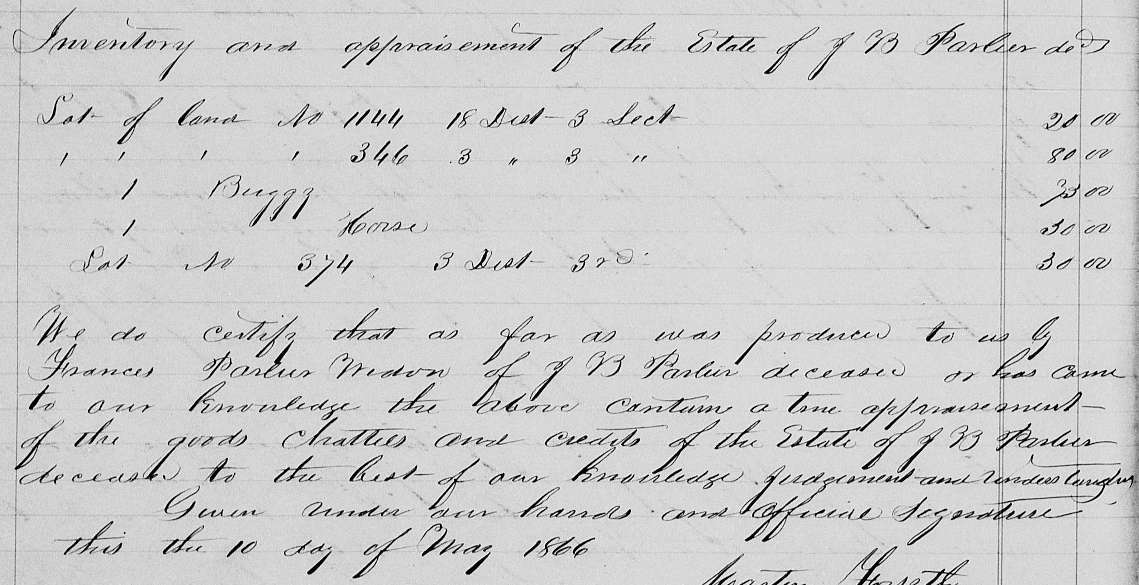 Inventory and appraisement of the Estate of J B Parlier decd
Lot of land No 1144 18 Dist 3 Sect 20 00
' ' ' ' 346 3 " 3 " 80 00
1 Buggy 75 00
1 Horse 30 00
Lot No 374 3 Dist 3rd 30 00
We do certify that as far as was produced to us by
Frances Parlier Widow of J B Parlier deceased or has come
to our knowledge the above contains a true appraisement
of the goods Chattles and credits of the Estate of J B Parlier
deceased to the best of our knowledge judgement and understanding
Given under our hands and official Signature
this the 10 day of May 1866
Martin